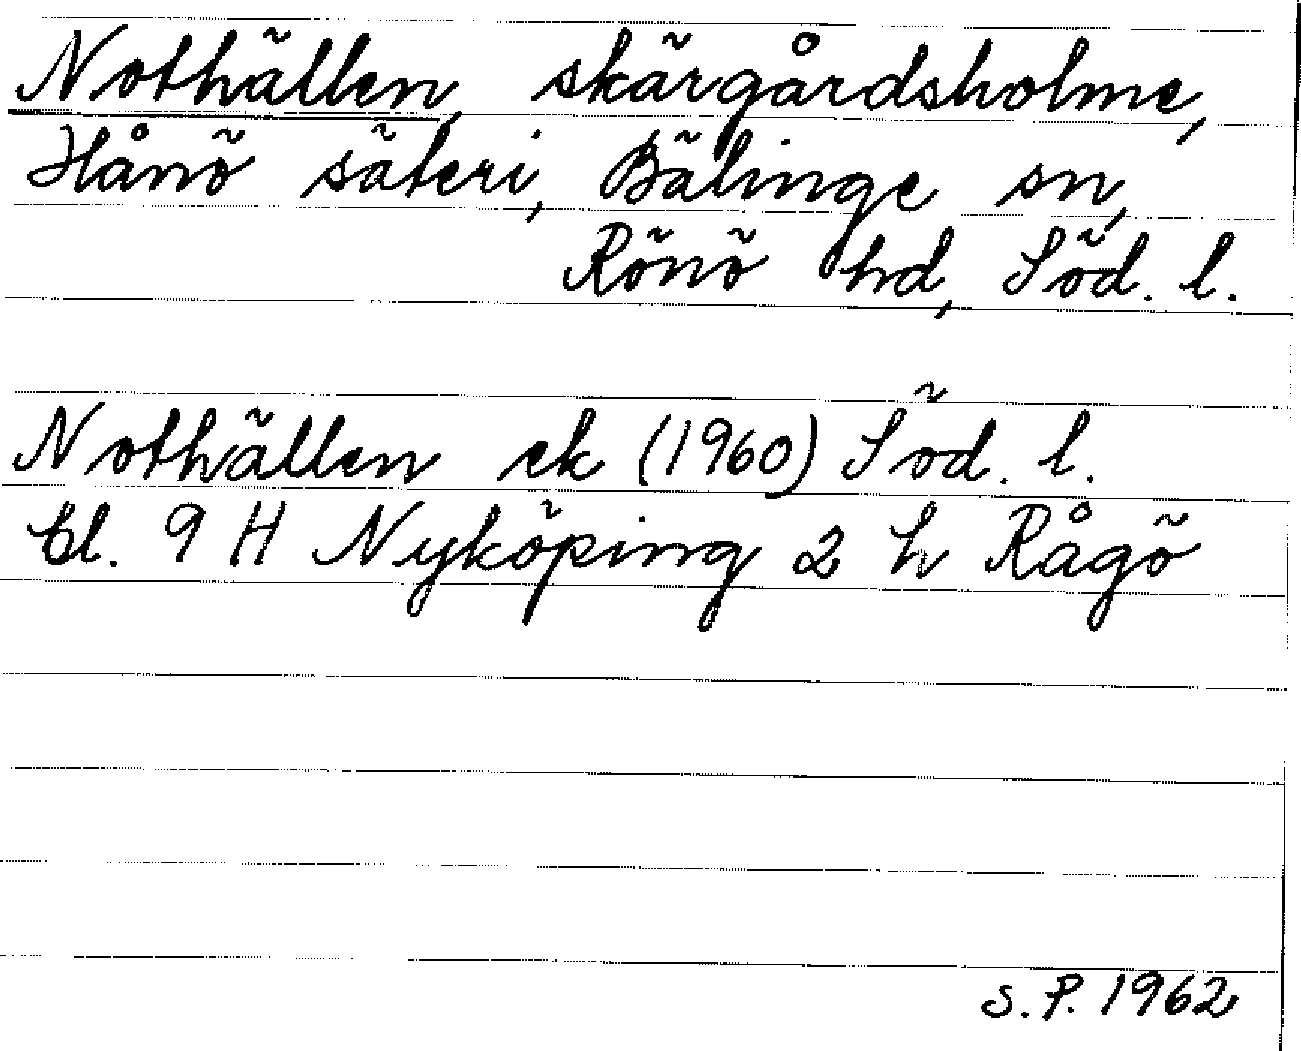 Nothällen, skärgårdsholme,
Hånö säteri, Bälinge sn,
Rönö hd, Söd. l.
Nothällen ek (1960) Söd. l.
Bl. 9 H Nyköping 2 h Rågö
S.P. 1962